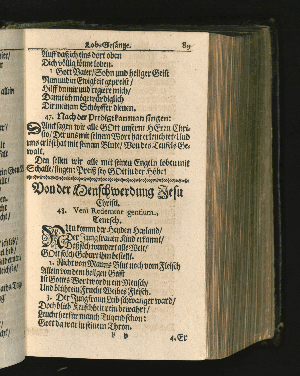 Lob-Gesänge. 89
Auff daß ich eins dort oben
Dich völlig könne loben.
Gott Vater/ Sohn und heilger Geist
Nim und in Ewigkeit gepreist/
Hilff mir und regiere mich/
Damit ich möge würdiglich
Dir meinem Schöpffer dienen.
47. Nach der Predigt kan man singen:
Danck sagen wir alle GOtt unserm HErrn Chri-
sto/ Der uns mit seinem Wort hat erleuchtet/ und
uns erlöset hat mit seinem Blute/ Von des Teufels Ge-
walt.
Den sollen wir alle mit seinen Engeln loben mit
Schalle/ singen: Preiß sey GOtt in der Höhe!
Von der Menschwerdung Jesu
Christi.
48. Veni Redemtor gentium,
Teutsch.
Nun komm der Heyden Heyland/
Der Jungfrauen Kind erkannt/
Deß sich wundert alle Welt/
GOtt solch Geburt ihm bestellt.
2. Nicht von Manns Blut noch vom Fleisch
Allein von dem heilgen Geist
Ist Gottes Wort worden ein Mensch/
Und blüht ein Frucht Weibes Fleisch.
3. Der Jungfrauen Leib schwanger ward/
Doch bleib Keuschheit rein bewahrt/
Leucht herfür manch Tugend schon:
Gott da war in seinem Thron.
4. Er